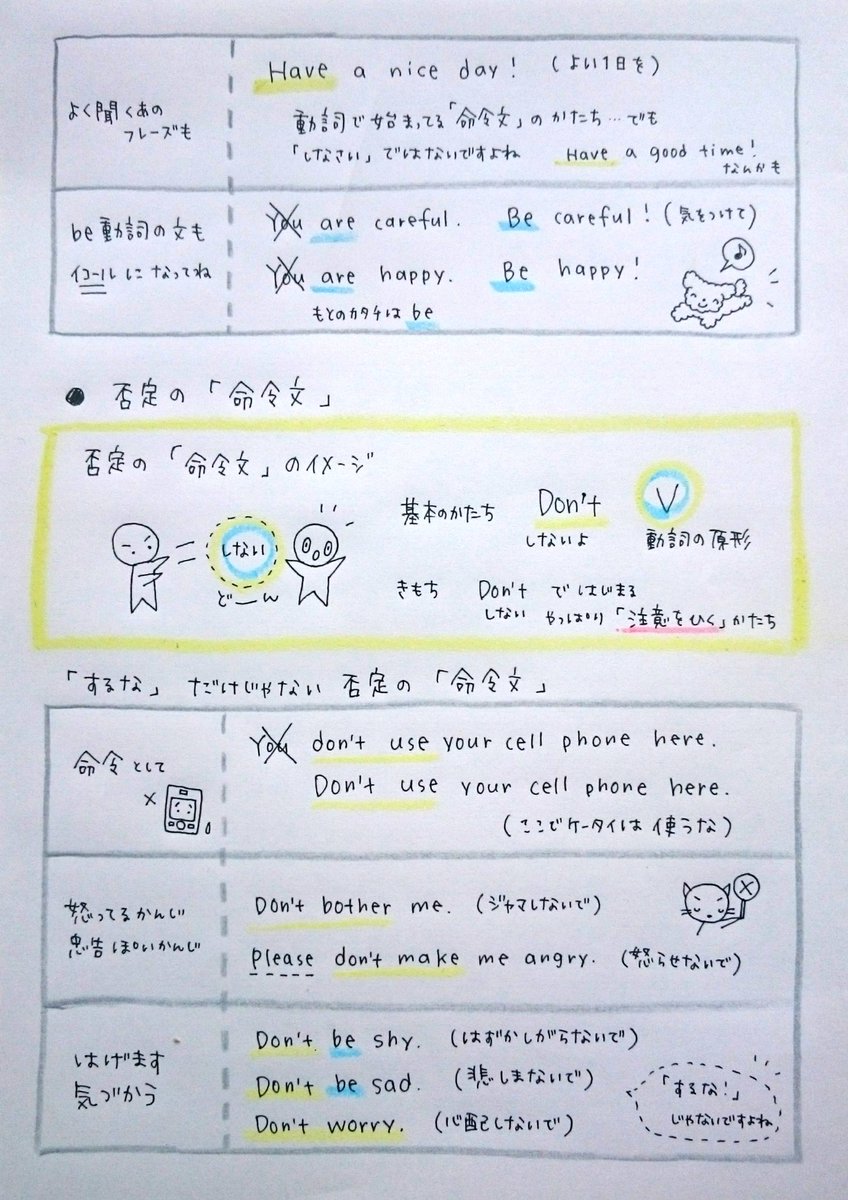 よく聞くあの
フレーズも
Have a nice day! (よい1日を)
動詞で始まってる「命令文」のかたち…でも
「しなさい」ではないですよね Have a good time!
なんかも
be動詞の文も
イコールになってね
You are careful. Be careful! (気をつけて)
You are happy. Be happy!
もとのカタチは be
● 否定の「命令文」
否定の「命令文」のイメージ
しない
どーん
基本のかたち Don't V
しないよ 動詞の原形
きもち Don't ではじまる
しない やっぱり「注意をひく」かたち
「するな」だけじゃない 否定の「命令文」
命令として
×
You don't use your cell phone here.
Don't use your cell phone here.
(ここでケータイは使うな)
怒ってるかんじ
忠告ぽいかんじ
Don't bother me. (ジャマしないで)
Please don't make me angry. (怒らせないで)
はげます
気づかう
Don't be shy. (はずかしがらないで)
Don't be sad. (悲しまないで)
Don't worry. (心配しないで)
「するな!」
じゃないですよね